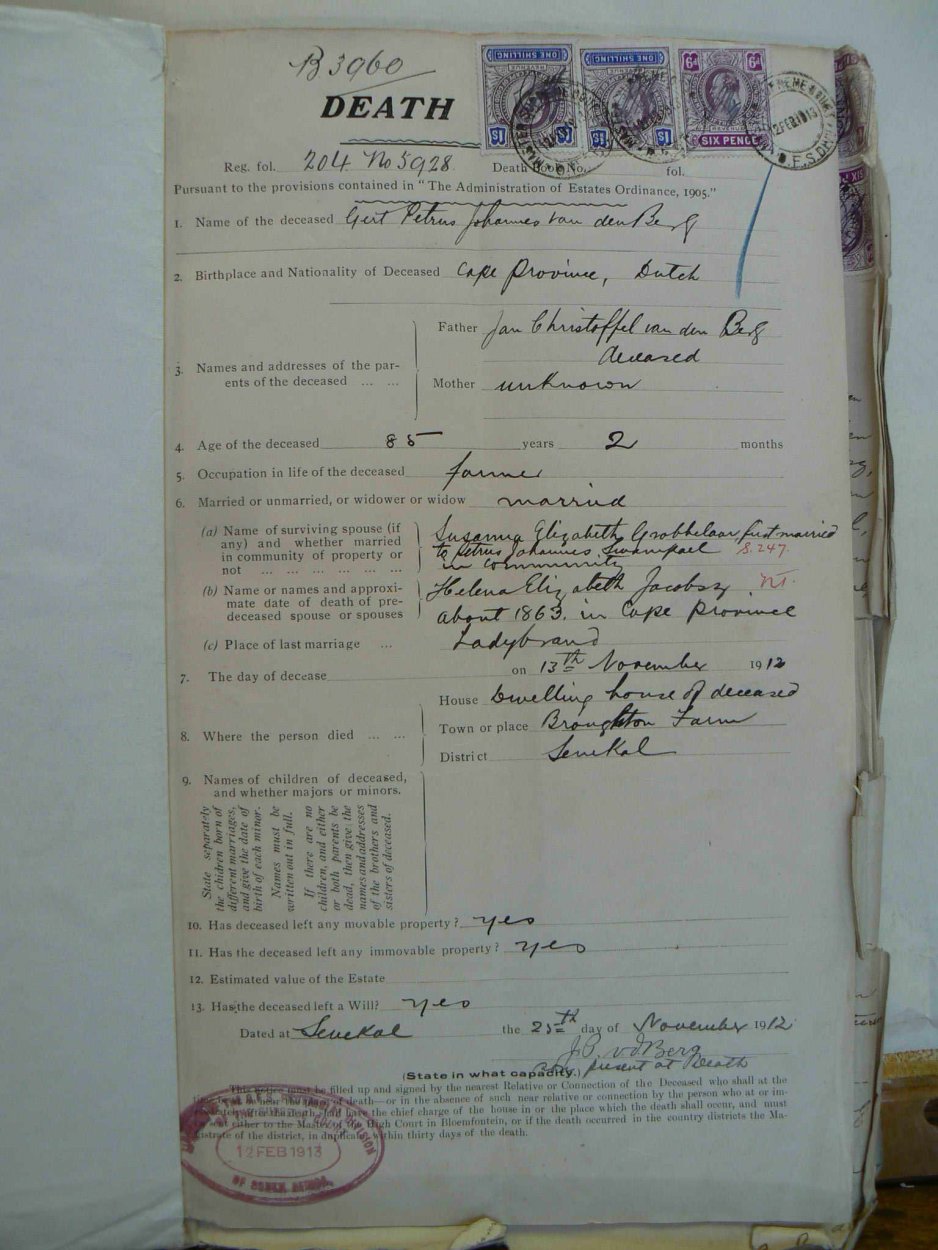 B 3960
DEATH
Reg. fol. 204 No 5928 Death Book No. fol.
Pursuant to the provisions contained in "The Administration of Estates Ordinance, 1905."
1. Name of the deceased Gert Petrus Johannes van den Berg
2. Birthplace and Nationality of Deceased Cape Province, Dutch
3. Names and addresses of the par-
ents of the deceased ... ...
Father Jan Christoffel van den Berg
deceased
Mother unknown
4. Age of the deceased 85 years 2 months
5. Occupation in life of the deceased farmer
6. Married or unmarried, or widower or widow married
(a) Name of surviving spouse (if
any) and whether married
in community of property or
not ... ... ... ... ...
Susanna Elizabeth Grobbelaar first married
to Petrus Johannes Swanepoel S. 247.
in community
(b) Name or names and approxi-
mate date of death of pre-
deceased spouse or spouses
Helena Elizabeth Jacobsz
about 1863. in Cape Province
(c) Place of last marriage ... Ladybrand
7. The day of decease on 13th November 1912
8. Where the person died ... ...
House Dwelling house of deceased
Town or place Broughton Farm
District Senekal
9. Names of children of deceased,
and whether majors or minors.
State separately
the chidren born of
different marriages,
and give the date of
birth of each minor.
Names must be
written out in full.
If there are no
children, and either
or both parents be
dead, then give the
names and addresses
of the brothers and
sisters of deceased.
10. Has deceased left any movable property? yes
11. Has the deceased left any immovable property? yes
12. Estimated value of the Estate
13. Has the deceased left a Will? yes
Dated at Senekal the 25th day of November 1912
v d Berg
present at Death
(State in what capacity.)
This notice must be filled up and signed by the nearest Relative or Connection of the Deceased who shall at the
of death—or in the absence of such near relative or connection by the person who at or im-
after the death, have the chief charge of the house in or the place which the death shall occur, and must
sent either to the Master of the High Court in Bloemfontein, or if the death occurred in the country districts the Ma-
gistrate of the district, in duplicate within thirty days of the death.
12 FEB 1913
ONE SHILLING
1S
ONE SHILLING
1S
6d 6d
REVENUE
SIX PENCE
12 FEB 1913